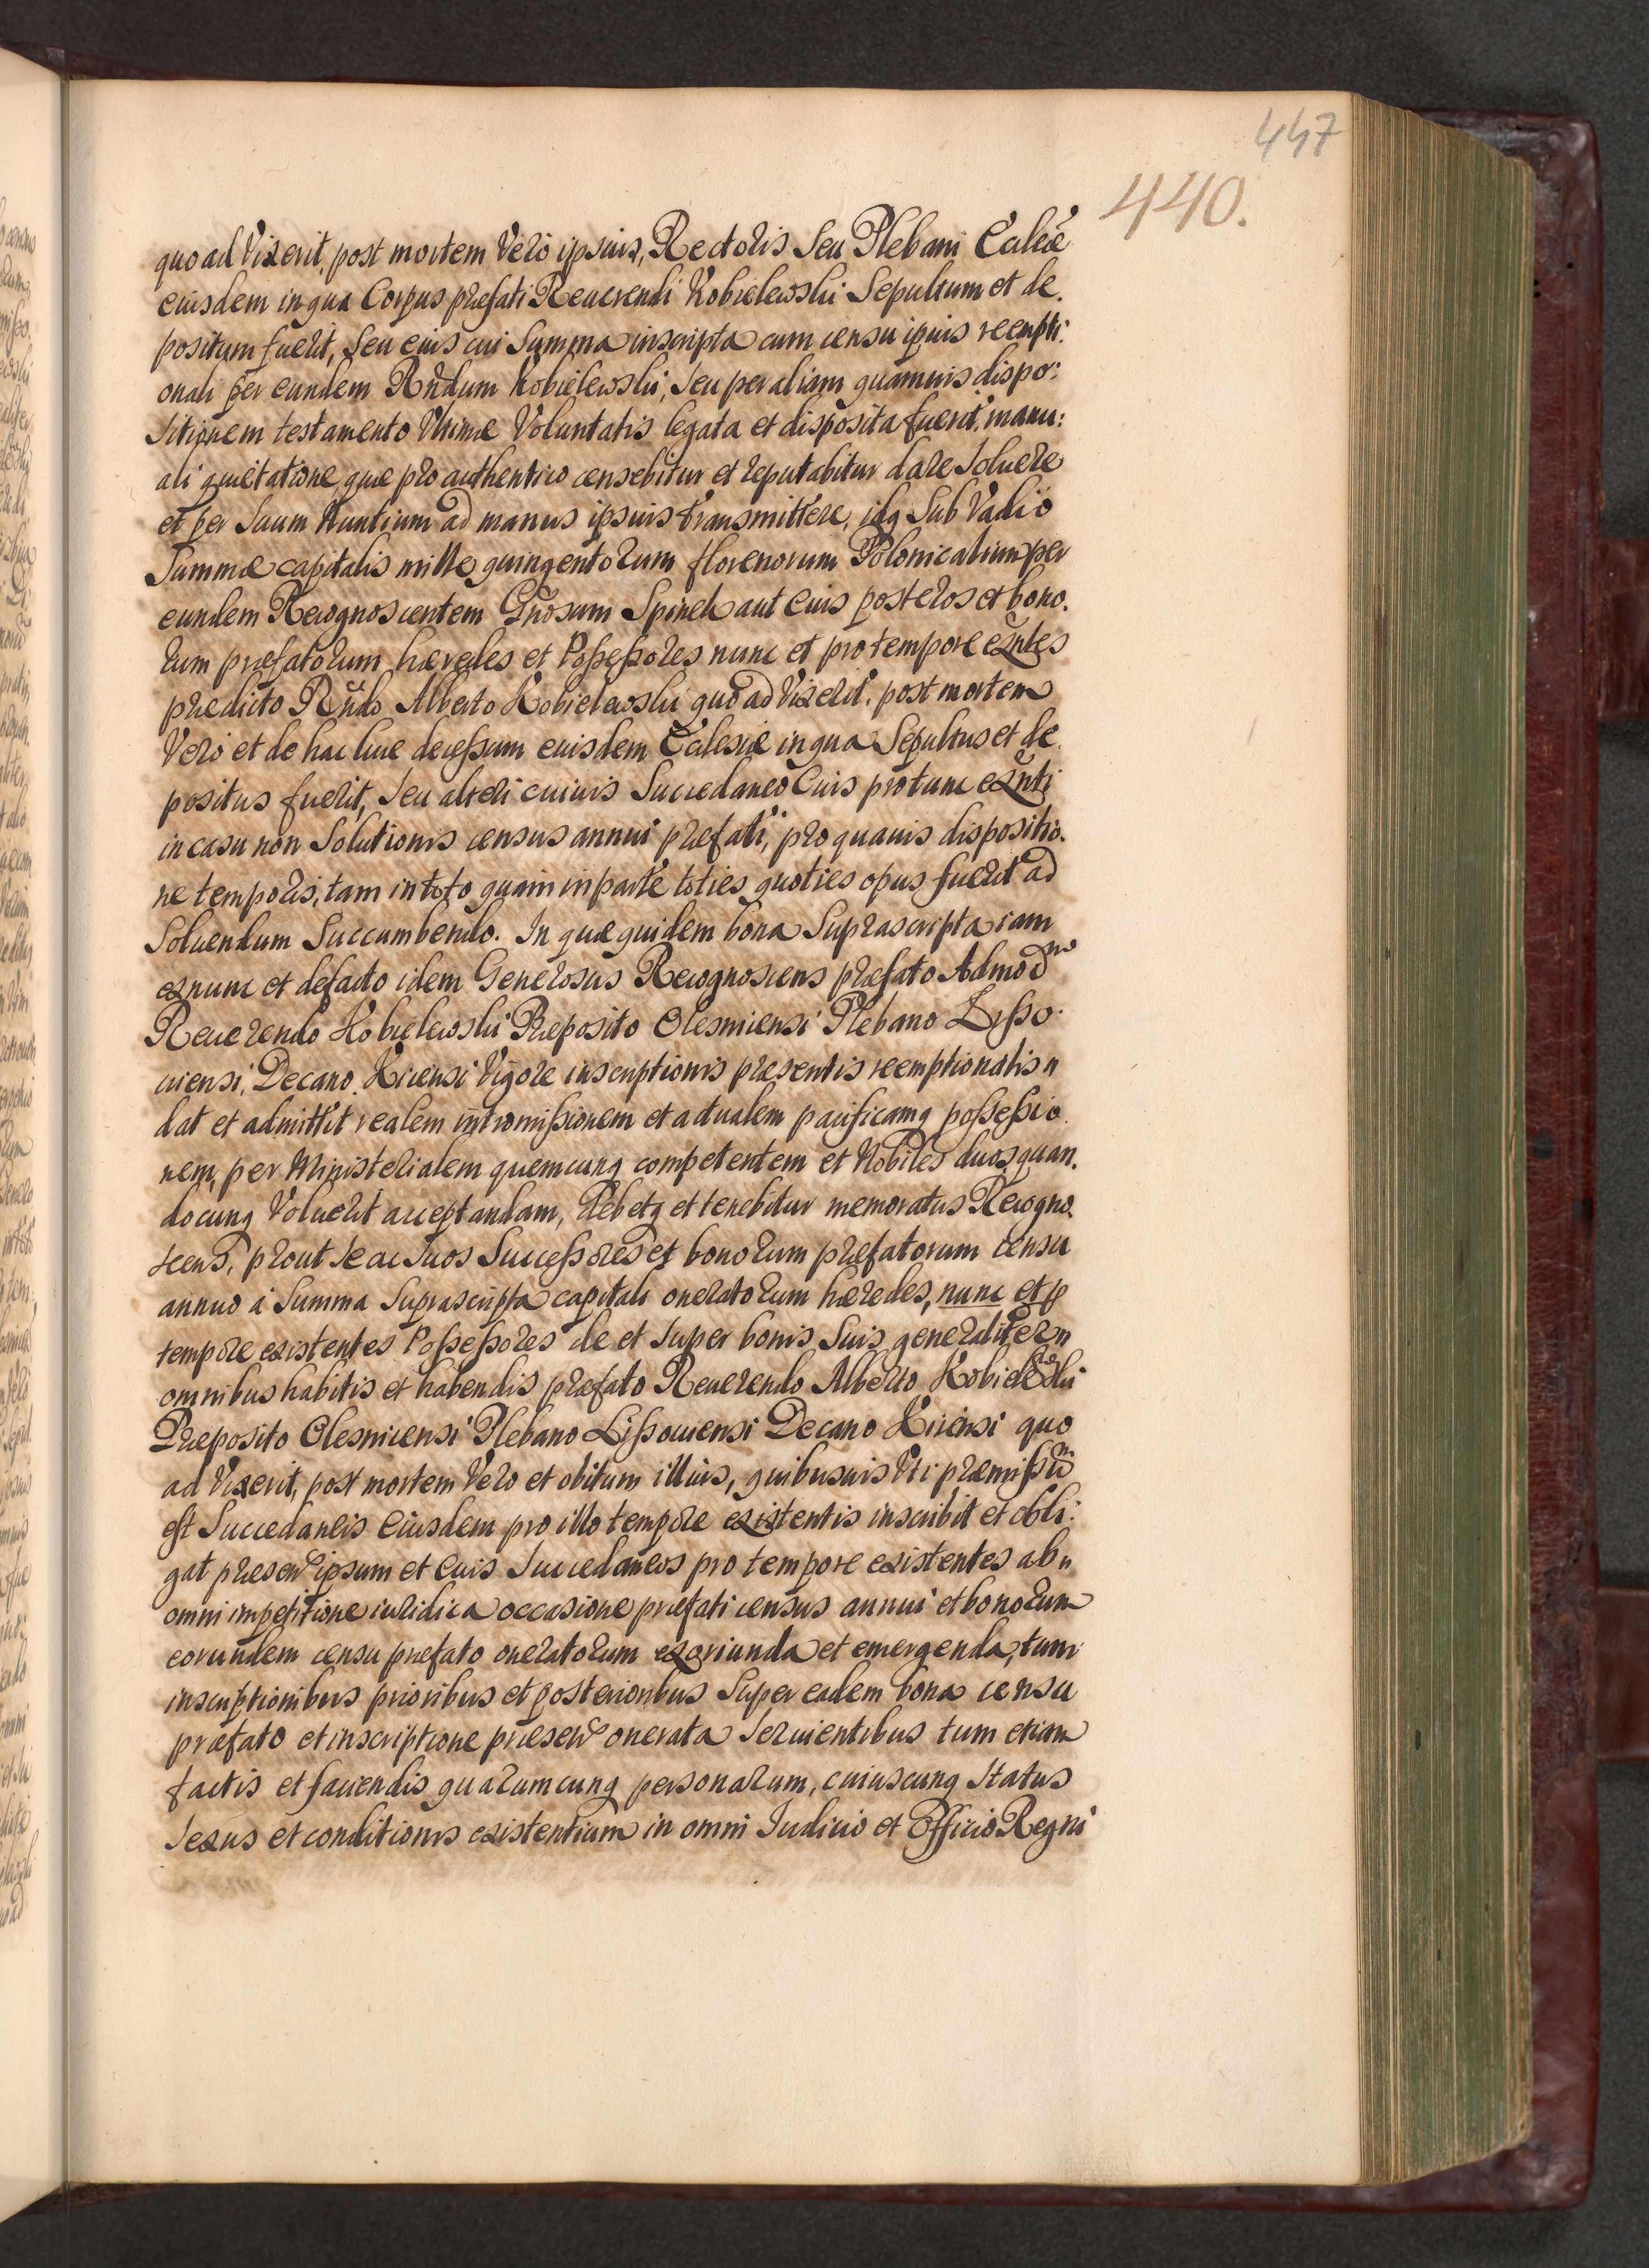 447
440.
quo ad Vixerit, post mortem Vero ipsius, Rectoris Seu Plebani Eccleae
eiusdem in qua Corpus praefati Reuerendi Kobielewski Sepultum et de.
positum fuerit, Seu eius cui Summa inscripta cum censu ipsius reempti:
onali per eundem Rndum Kobielewski, Seu per aliam quamuis dispo:
sitionem testamento Vltimae Voluntatis legata et disposita fuerit, manu:
ali quietatione, quae pro authentico censebitur et reputabitur dare Soluere
et per Suum Nuntium ad manus ipsius transmittere, idq Sub Vadio
Summae capitalis mille quingentorum florenorum Polonicalium per
eundem Recognoscentem Gnosum Spinek aut eius posteros et bono.
rum praefatorum haeredes et Possessores nunc et pro tempore exntes
praedicto Rndo Alberto Kobielewski quo ad Vixerit, post mortem
Vero et de hac luce decessum eiusdem Ecclesiae in qua Sepultus et de.
positus fuerit, Seu alteri cuiuis Succedaneo Eius pro tunc exnti
in casu non Solutionis census annui praefati, pro quauis dispositio.
ne temporis, tam in toto quam in parte toties quoties opus fuerit ad
Soluendum Succumbendo. In quae quidem bona Suprascripta iam
ex nunc et de facto idem Generosus Recognoscens praefato Admodm
Reuerendo Kobielewski Praeposito Olesniensi Plebano Lisso.
uiensi, Decano Kicensi Vigore inscriptionis praesentis reemptionalis
dat et admittit realem intromissionem et actualem pacificamq possessio.
nem, per Ministerialem quemcunq competentem et Nobiles duos, quan.
docunq Voluerit acceptandam, Debetq et tenebitur memoratus Recogno.
scens, prout Se ac Suos Successores et bonorum praefatorum censu
annuo à Summa Suprascripta capitali oneratorum haeredes, nunc et p
tempore existentes Possessores de et Super bonis Suis generaliter
omnibus habitis et habendis praefato Reuerendo Alberto Kobielewski
Praeposito Olesnicensi Plebano Lissouiensi Decano Kicensi quo
ad Vixerit, post mortem Vero et obitum illius, quibusuis Vti praemissum
est Succedaneis Eiusdem pro illo tempore existentis inscribit et obli:
gat ipsum et Eius Succedaneos pro tempore existentes ab
omni impetitione iuridica occasione praefati census annui et bonorum
eorundem censu praefato oneratorum exoriunda et emergenda, tum
inscriptionibus prioribus et posterioribus Super eadem bona censu
praefato et inscriptione onerata Seruientibus tum etiam
factis et faciendis quarumcunq personarum, cuiuscunq Status
Sexus et conditionis existentium in omni Iudicio et Officio Regni